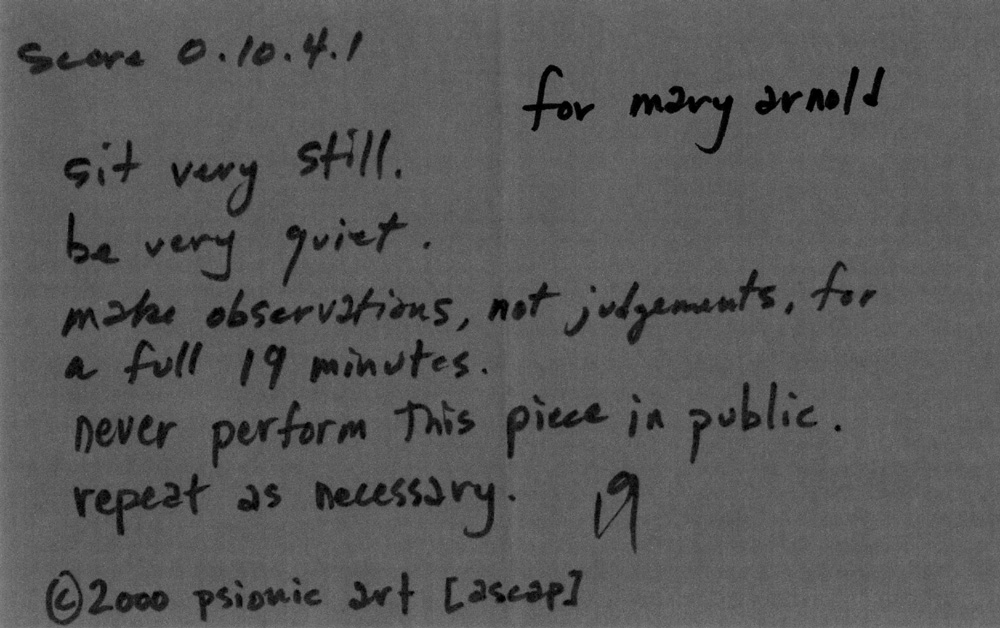 score 0.10.4.1
for mary arnold
sit very still.
be very quiet.
make observations, not judgements, for
a full 19 minutes.
never perform this piece in public.
repeat as necessary. 19
©2000 psionic art [ascap]